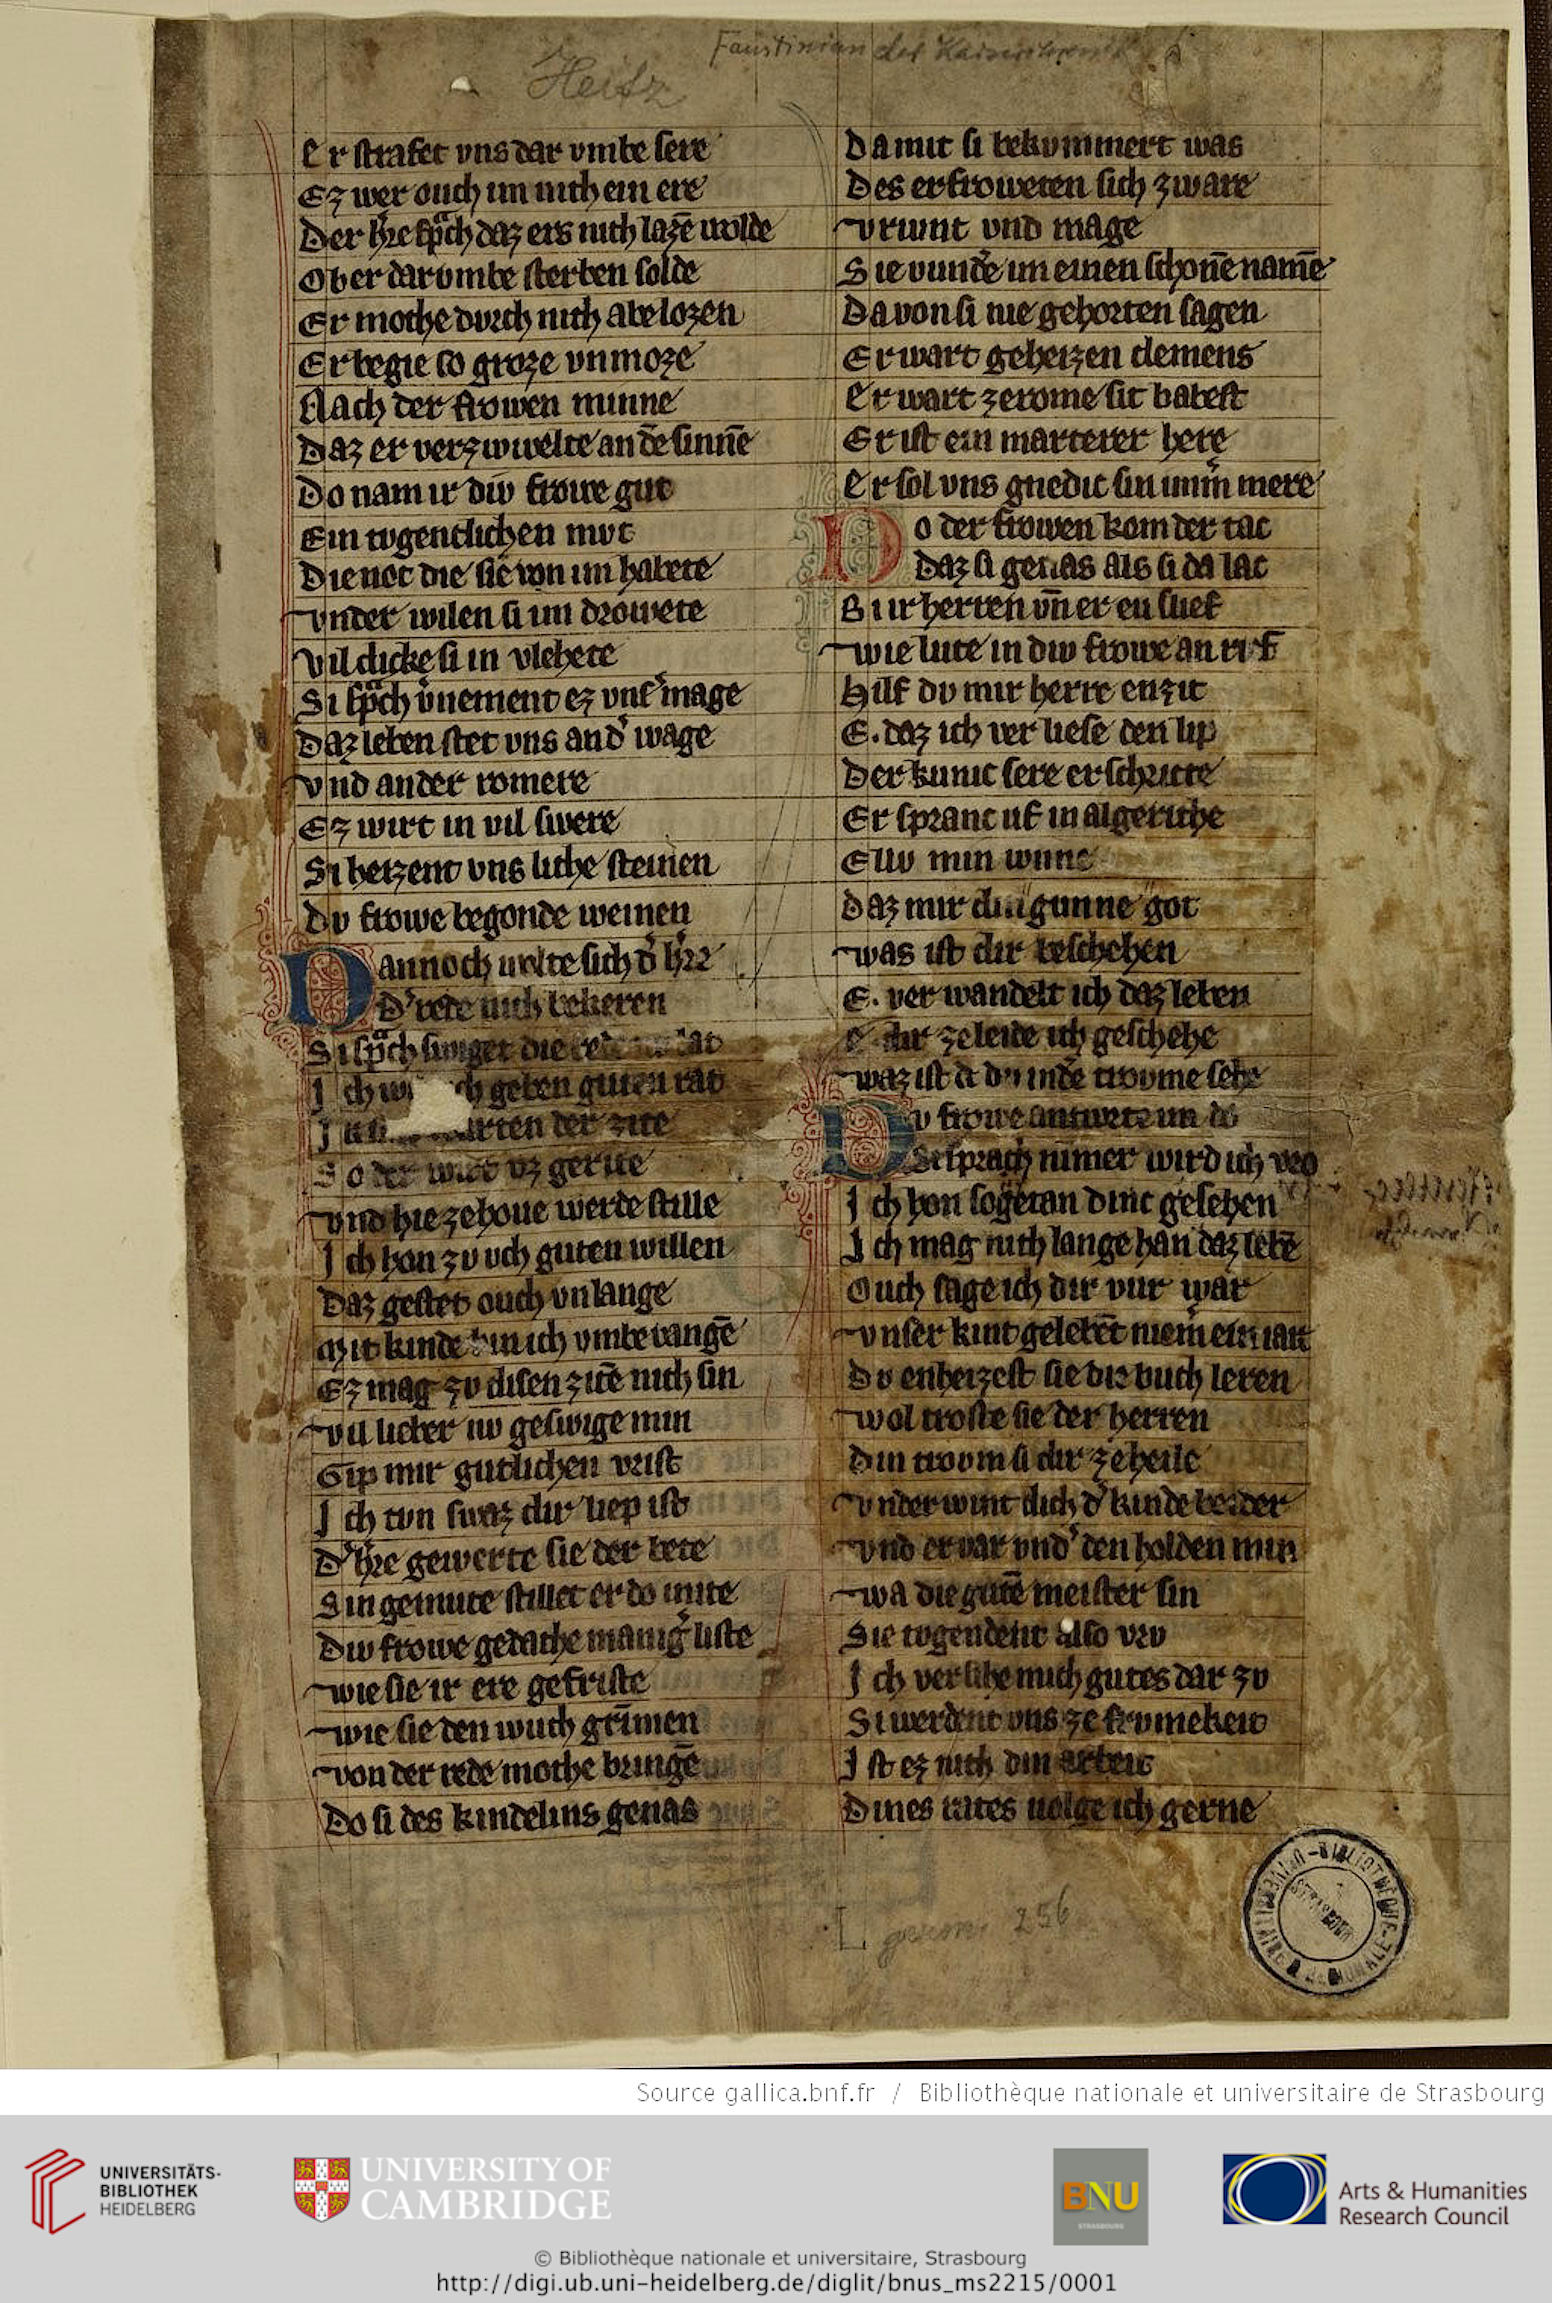 Faustinian der Kaiserchronik
Heitz
Er strafet vns dar vmbe sere
Ez wer ouch im nith ein ere
Der h're sprach daz ers nith lazē wolde
Ob er dar vmbe sterben solde
Er mothe durch nith abe lozen
Er begie so groze vnmoze
Nach der frowen minne
Daz er verzwiuelte an dē sinnē
Do nam ir diw frowe gut
Ein tvgentlichen mvt
Die not die sie von im habete
vnder wilen si im drowete
vil dicke si in vlehete
Si sprach v'nement ez vns' mage
Daz leben stet vns an d' wage
vnd ander romere
Ez wirt in vil swere
Si heizent vns lithe steinen
Dv frowe begonde weinen
Dannoch wolte sich d' h're
D' bete nith bekeren
Si sprach swiget die
Ich geben guten rat
der zite
So der wirt vz gerite
vnd hie zehoue werde stille
Ich hon zv vch guten willen
Daz gestet ouch vnlange
Mit kinde bin ich vmbe vangē
Ez mag zv disen zitē nith sin
vil lieber nv geswige min
Gip mir gutlichen vrist
Ich tvn swaz dir liep ist
D' h're gewerte sie der bete
Sin gemute stillet er do mite
Diw frowe gedathe manig' liste
wie sie ir ere gefriste
wie sie den wuth grimen
von der rede mothe bringē
Do si des kindelins genas
Da mit si bekvmmert was
Des erfroweten sich zware
vriunt vnd mage
Sie vundē im einen schonē namē
Da von si nie gehorten sagen
Er wart geheizen clemens
Er wart zerome sit babest
Er ist ein marterer here
Er sol vns gnedic sin imm' mere
Do der frowen kom der tac
Daz si genas als si da lac
Bi ir herren vn̄ er en slief
wie lute in diw frowe an rief
Hilf dv mir herre enzit
E. daz ich ver liese den lip
Der kunic sere erschricte
Er spranc uf in algerithe
Ellv min wnne
Daz mir din gunne got
was ist dir beschehen
E. ver wandelt ich daz leben
e dir ze leide ith geschehe
waz ist troume sehe
Dv frowe antwrte im do
Si sprach nimer wird ich vro
Ich hon so getan dinc gesehen
Ich mag nith lange han daz lebē
Ouch sage ich dir vur war
vnser kint gelebēt niem' ein iar
Dv enheizest sie dir buch leren
wol troste sie der herren
Din trovm si dir ze heile
vnder wint dich d' kinde beider
vnd er var vnd' den holden min
wa die gutē meister sin
Sie tvgendent also vrv
Ich ver sihe mich gutes dar zv
Si werdent vns ze frvmekeit
Ist ez nith din arbeit
Dines rates uolge ich gerne
L germ. 256
Source gallica.bnf.fr / Bibliothèque nationale et universitaire de Strasbourg
UNIVERSITÄTS-
BIBLIOTHEK
HEIDELBERG
UNIVERSITY OF
CAMBRIDGE
BNU
STRASBOURG
Arts & Humanities
Research Council
© Bibliothèque nationale et universitaire, Strasbourg
http://digi.ub.uni-heidelberg.de/diglit/bnus_ms2215/0001